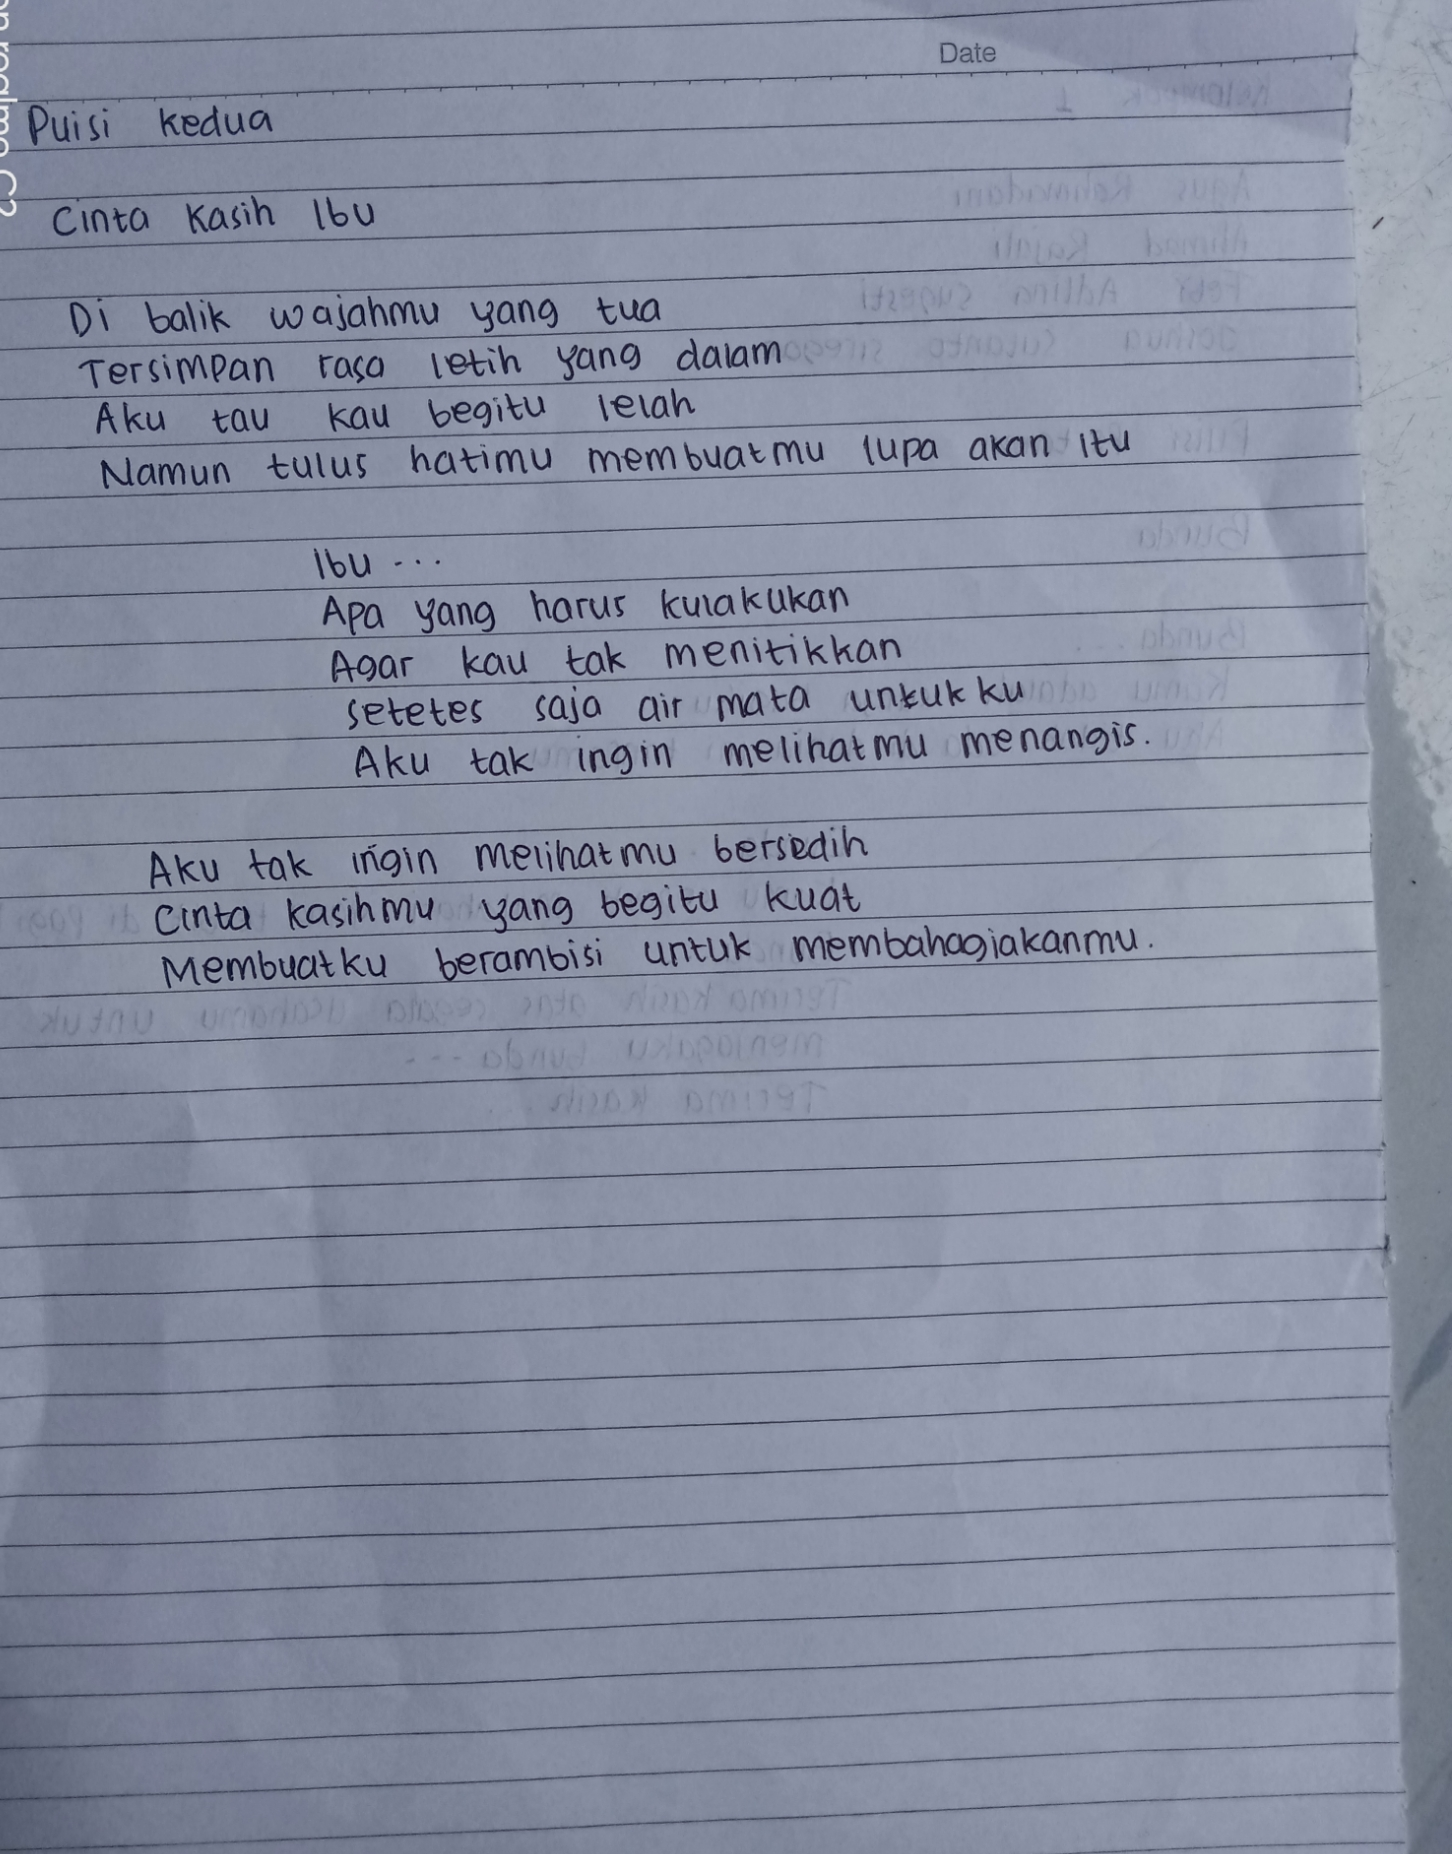 Date
Puisi kedua
Cinta Kasih Ibu
Di balik wajahmu yang tua
Tersimpan rasa letih yang dalam
Aku tau kau begitu lelah
Namun tulus hatimu membuatmu lupa akan itu
Ibu ...
Apa yang harus kulakukan
Agar kau tak menitikkan
setetes saja air mata untukku
Aku tak ingin melihatmu menangis.
Aku tak ingin melihatmu bersedih
Cinta kasihmu yang begitu kuat
Membuatku berambisi untuk membahagiakanmu.